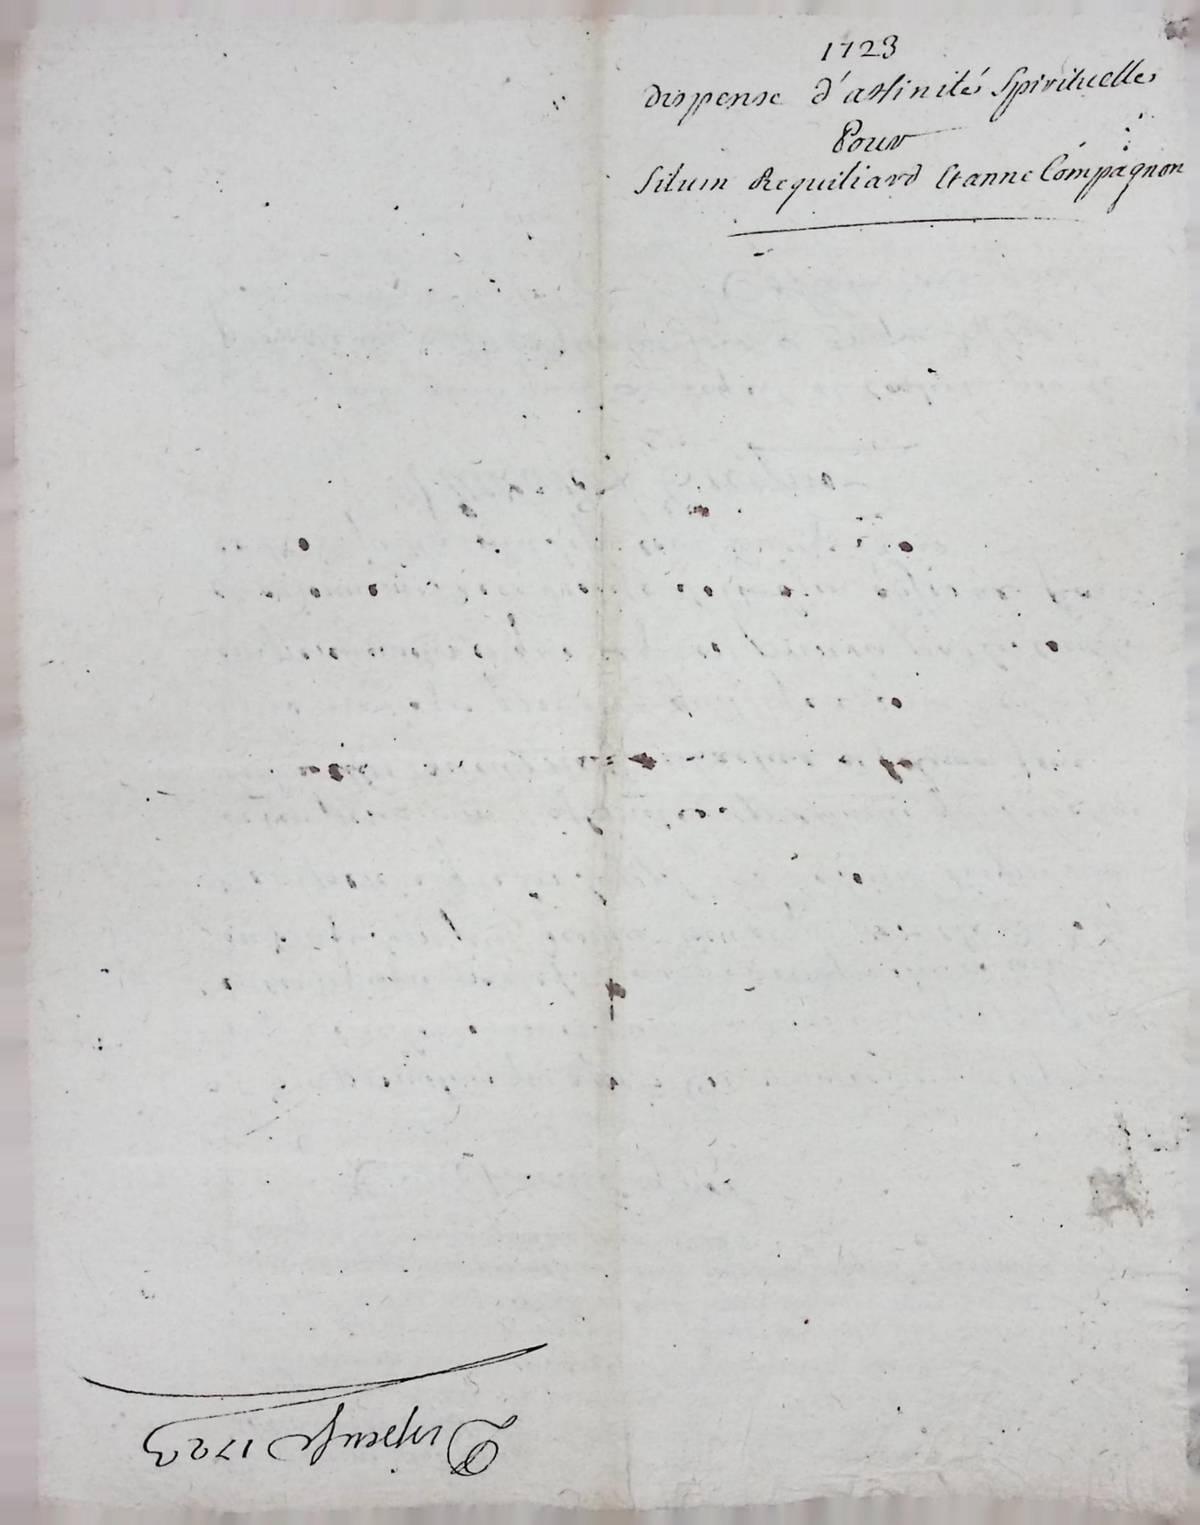 1723
Dispense d'affinités Spirituelles
Pour
Silvin Requiliard Et anne Compagnon
Dispense 1723